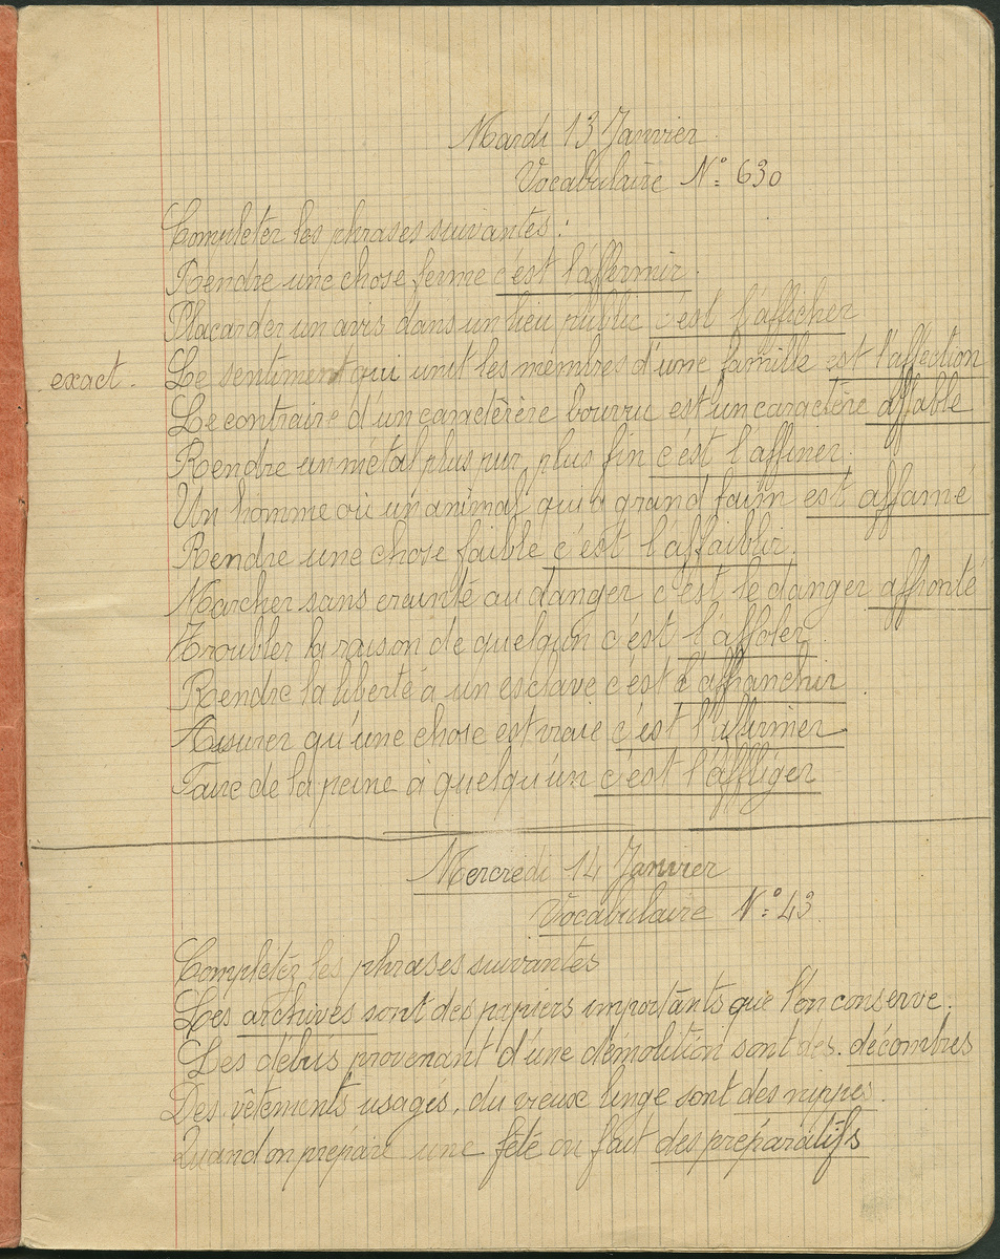 Mardi 13 Janvier
Vocabulaire N°: 630
Completer les phrases suivantes :
Rendre une chose ferme c'est l'affermir.
Placarder un avis dans un lieu public c'est l'afficher
exact. Le sentiment qui unit les membres d'une famille est l'affection
Le contraire d'un caractèrère bourru est un caractère affable
Rendre un métal plus pur, plus fin c'est l'affiner.
Un homme ou un animal qui a grand faim est affamé
Rendre une chose faible c'est l'affaiblir.
Marcher sans crainte au danger c'est le danger affronté
Troubler la raison de quelqun c'est l'affoler
Rendre la liberté à un esclave c'est l'affranchir.
Assurer qu'une chose est vraie c'est l'affirmer
Faire de la peine à quelqu'un c'est l'affliger
Mercredi 14 Janvier
Vocabulaire N°: 43
Complétez les phrases suivantes
Les archives sont des papiers importants que l'on conserve.
Les débris provenant d'une démolition sont des. décombres
Des vêtements usagés, du vieux linge sont des nippes.
Quand on prépare une fête on fait des préparatifs